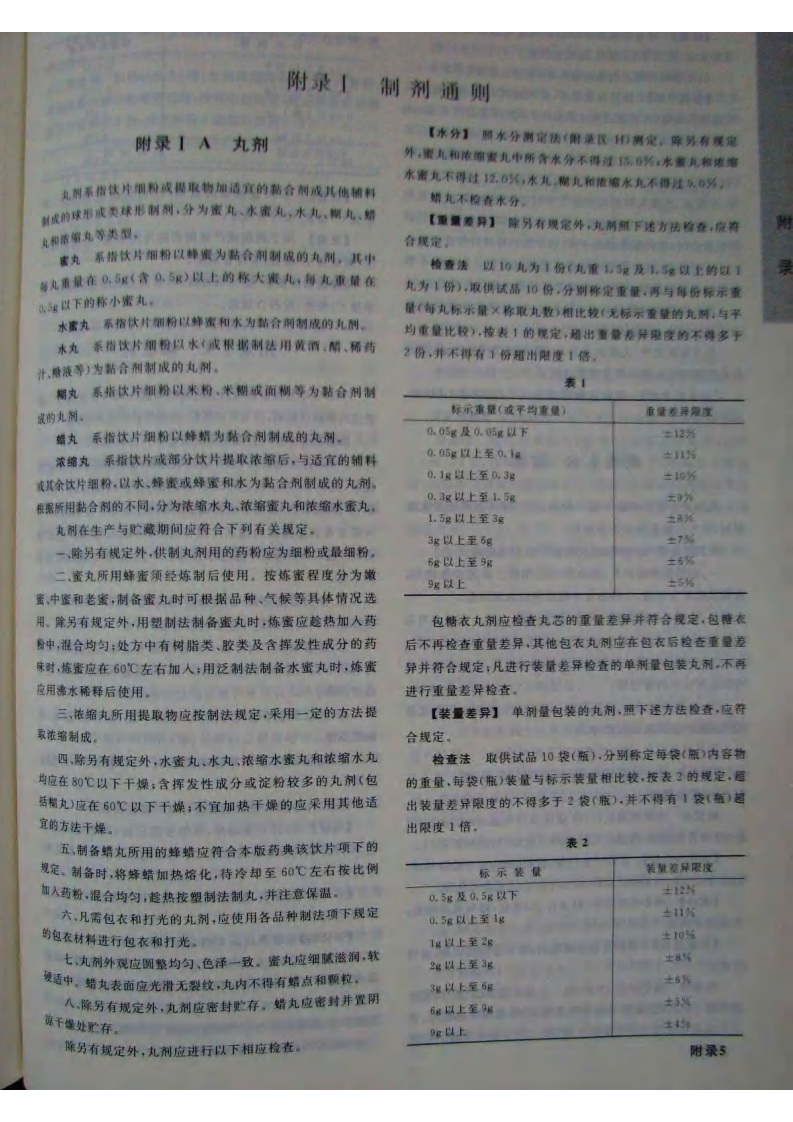 附录Ⅰ 制剂通则
附录Ⅰ A 丸剂
丸剂系指饮片细粉或提取物加适宜的黏合剂或其他辅料
制成的球形或类球形制剂,分为蜜丸、水蜜丸、水丸、糊丸、蜡
丸和浓缩丸等类型。
蜜丸 系指饮片细粉以蜂蜜为黏合剂制成的丸剂。其中
每丸重量在 0.5g(含 0.5g)以上的称大蜜丸,每丸重量在
0.5g以下的称小蜜丸。
水蜜丸 系指饮片细粉以蜂蜜和水为黏合剂制成的丸剂。
水丸 系指饮片细粉以水(或根据制法用黄酒、醋、稀药
汁、糖液等)为黏合剂制成的丸剂。
糊丸 系指饮片细粉以米粉、米糊或面糊等为黏合剂制
成的丸剂。
蜡丸 系指饮片细粉以蜂蜡为黏合剂制成的丸剂。
浓缩丸 系指饮片或部分饮片提取浓缩后,与适宜的辅料
或其余饮片细粉,以水、蜂蜜或蜂蜜和水为黏合剂制成的丸剂。
根据所用黏合剂的不同,分为浓缩水丸、浓缩蜜丸和浓缩水蜜丸。
丸剂在生产与贮藏期间应符合下列有关规定。
一、除另有规定外,供制丸剂用的药粉应为细粉或最细粉。
二、蜜丸所用蜂蜜须经炼制后使用。按炼蜜程度分为嫩
蜜、中蜜和老蜜,制备蜜丸时可根据品种、气候等具体情况选
用。除另有规定外,用塑制法制备蜜丸时,炼蜜应趁热加入药
粉中,混合均匀;处方中有树脂类、胶类及含挥发性成分的药
味时,炼蜜应在 60℃左右加入;用泛制法制备水蜜丸时,炼蜜
应用沸水稀释后使用。
三、浓缩丸所用提取物应按制法规定,采用一定的方法提
取浓缩制成。
四、除另有规定外,水蜜丸、水丸、浓缩水蜜丸和浓缩水丸
均应在 80℃以下干燥;含挥发性成分或淀粉较多的丸剂(包
括糊丸)应在 60℃以下干燥;不宜加热干燥的应采用其他适
宜的方法干燥。
五、制备蜡丸所用的蜂蜡应符合本版药典该饮片项下的
规定。制备时,将蜂蜡加热熔化,待冷却至 60℃左右按比例
加入药粉,混合均匀,趁热按塑制法制丸,并注意保温。
六、凡需包衣和打光的丸剂,应使用各品种制法项下规定
的包衣材料进行包衣和打光。
七、丸剂外观应圆整均匀、色泽一致。蜜丸应细腻滋润,软
硬适中。蜡丸表面应光滑无裂纹,丸内不得有蜡点和颗粒。
八、除另有规定外,丸剂应密封贮存。蜡丸应密封并置阴
凉干燥处贮存。
除另有规定外,丸剂应进行以下相应检查。
【水分】 照水分测定法(附录Ⅸ H)测定。除另有规定
外,蜜丸和浓缩蜜丸中所含水分不得过 15.0%;水蜜丸和浓缩
水蜜丸不得过 12.0%;水丸、糊丸和浓缩水丸不得过 9.0%。
蜡丸不检查水分。
【重量差异】 除另有规定外,丸剂照下述方法检查,应符
合规定。
检查法 以 10 丸为 1 份(丸重 1.5g 及 1.5g 以上的以 1
丸为 1 份),取供试品 10 份,分别称定重量,再与每份标示重
量(每丸标示量×称取丸数)相比较(无标示重量的丸剂,与平
均重量比较),按表 1 的规定,超出重量差异限度的不得多于
2 份,并不得有 1 份超出限度 1 倍。
表 1
标示重量(或平均重量) 重量差异限度
0.05g 及 0.05g 以下 ±12%
0.05g 以上至 0.1g ±11%
0.1g 以上至 0.3g ±10%
0.3g 以上至 1.5g ±9%
1.5g 以上至 3g ±8%
3g 以上至 6g ±7%
6g 以上至 9g ±6%
9g 以上 ±5%
包糖衣丸剂应检查丸芯的重量差异并符合规定,包糖衣
后不再检查重量差异,其他包衣丸剂应在包衣后检查重量差
异并符合规定;凡进行装量差异检查的单剂量包装丸剂,不再
进行重量差异检查。
【装量差异】 单剂量包装的丸剂,照下述方法检查,应符
合规定。
检查法 取供试品 10 袋(瓶),分别称定每袋(瓶)内容物
的重量,每袋(瓶)装量与标示装量相比较,按表 2 的规定,超
出装量差异限度的不得多于 2 袋(瓶),并不得有 1 袋(瓶)超
出限度 1 倍。
表 2
标 示 装 量 装量差异限度
0.5g 及 0.5g 以下 ±12%
0.5g 以上至 1g ±11%
1g 以上至 2g ±10%
2g 以上至 3g ±8%
3g 以上至 6g ±6%
6g 以上至 9g ±5%
9g 以上 ±4%
附录5
附
录